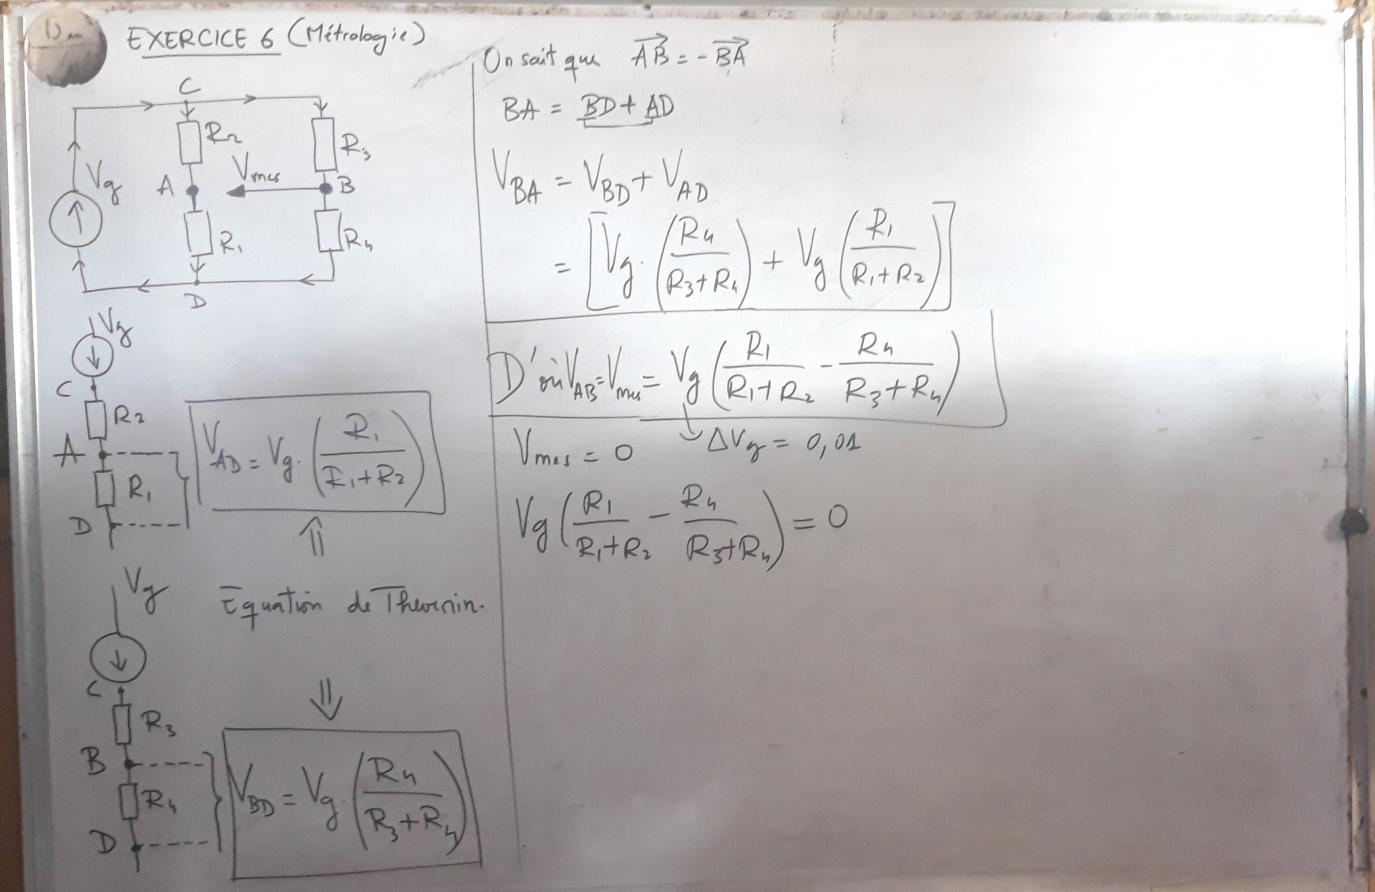 EXERCICE 6 (Métrologie)
C
R2
R3
Vg
Vmes
A
B
R1
R4
D
Vg
C
R2
A
R1
D
V_AD = Vg. (R1 / (R1+R2))
Equation de Thevenin.
Vg
C
R3
B
R4
D
V_BD = Vg. (R4 / (R3+R4))
On sait que \overrightarrow{AB} = -\overrightarrow{BA}
BA = BD + AD
V_BA = V_BD + V_AD
= [Vg. (R4 / (R3+R4)) + Vg (R1 / (R1+R2))]
D'où V_AB = Vmes = Vg (R1 / (R1+R2) - R4 / (R3+R4))
Vmes = 0
ΔVg = 0,01
Vg (R1 / (R1+R2) - R4 / (R3+R4)) = 0